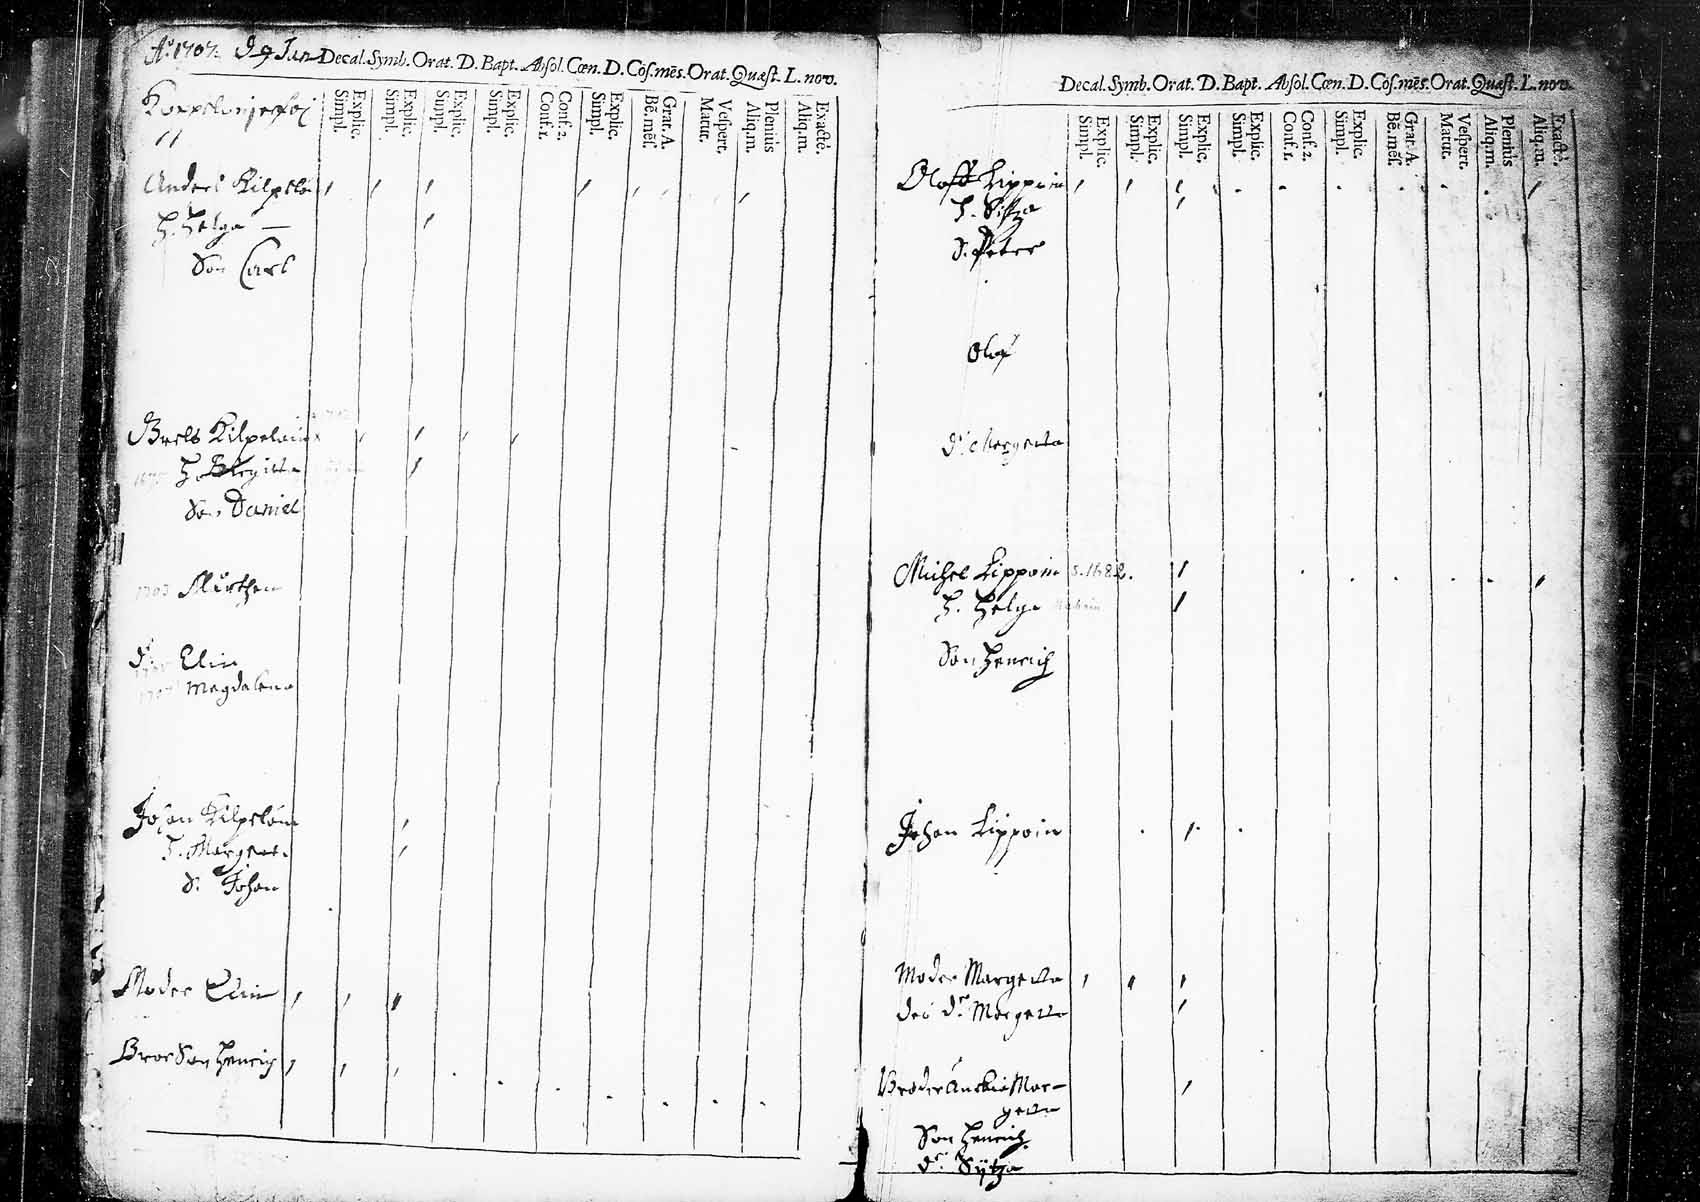 Ao 1707. D 9 Jan
Decal. Symb. Orat. D. Bapt. Absol. Cœn. D. Cōs. mēs. Orat. Quæst. L. nov.
Explic. Simpl. Explic. Simpl. Explic. Simpl. Explic. Simpl. Conf. 2. Conf. 1. Explic. Simpl. Grat. A. Bē. mēs. Vespert. Matut. Pleniùs Aliq. m. Exactè. Aliq. m.
Anders Kilpeläin
H. Helga —
Son Carl
Brels Kilpeläin
H. Bregitta
Son Daniel
1703 Mårthen
Dr Elin
1707 Magdalena
Johan Kilpeläin
H. Marget.
S. Johan
Moder Elin
Bror Son Henrich
Decal. Symb. Orat. D. Bapt. Absol. Cœn. D. Cōs. mēs. Orat. Quæst. L. nov.
Explic. Simpl. Explic. Simpl. Explic. Simpl. Explic. Simpl. Conf. 2. Conf. 1. Explic. Simpl. Grat. A. Bē. mēs. Vespert. Matut. Pleniùs Aliq. m. Exactè. Aliq. m.
Oloff Lippoin
H. Sitza
S. Peter
Olof
Dr Margetta
Michel Lippoin s. 1682.
H. Helga
Son Henrich
Johan Lippoin
Moder Margetta
Dr. Margetta
Broder Änckia Mar-
getta
Son Henrich
Dr. Sijtza